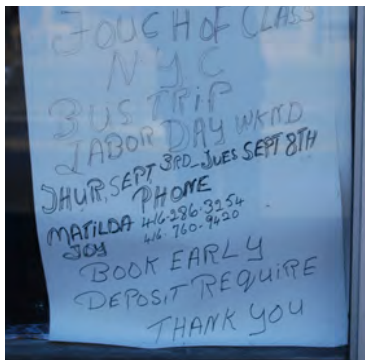 TOUCH OF CLASS
NYC
BUS TRIP
LABOR DAY WKND
THUR, SEPT 3RD - TUES SEPT 8TH
PHONE
MATILDA 416-286-3254
JOY 416-760-9420
BOOK EARLY
DEPOSIT REQUIRE
THANK YOU